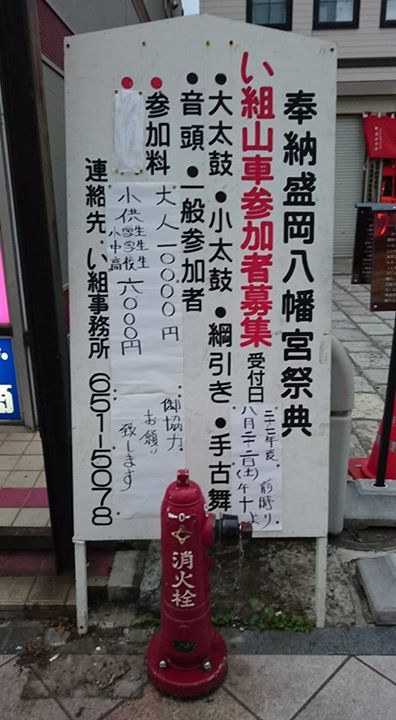 奉納盛岡八幡宮祭典
い組山車参加者募集
受付日
八月二十二日(土)
午前十時より
●大太鼓●小太鼓●綱引き●手古舞
●音頭●一般参加者
●参加料
大人一〇〇〇〇円
小供
小学生
中学生
高校生
六〇〇〇円
御協力
お願い
致します
連絡先 い組事務所 651-5078
消火栓